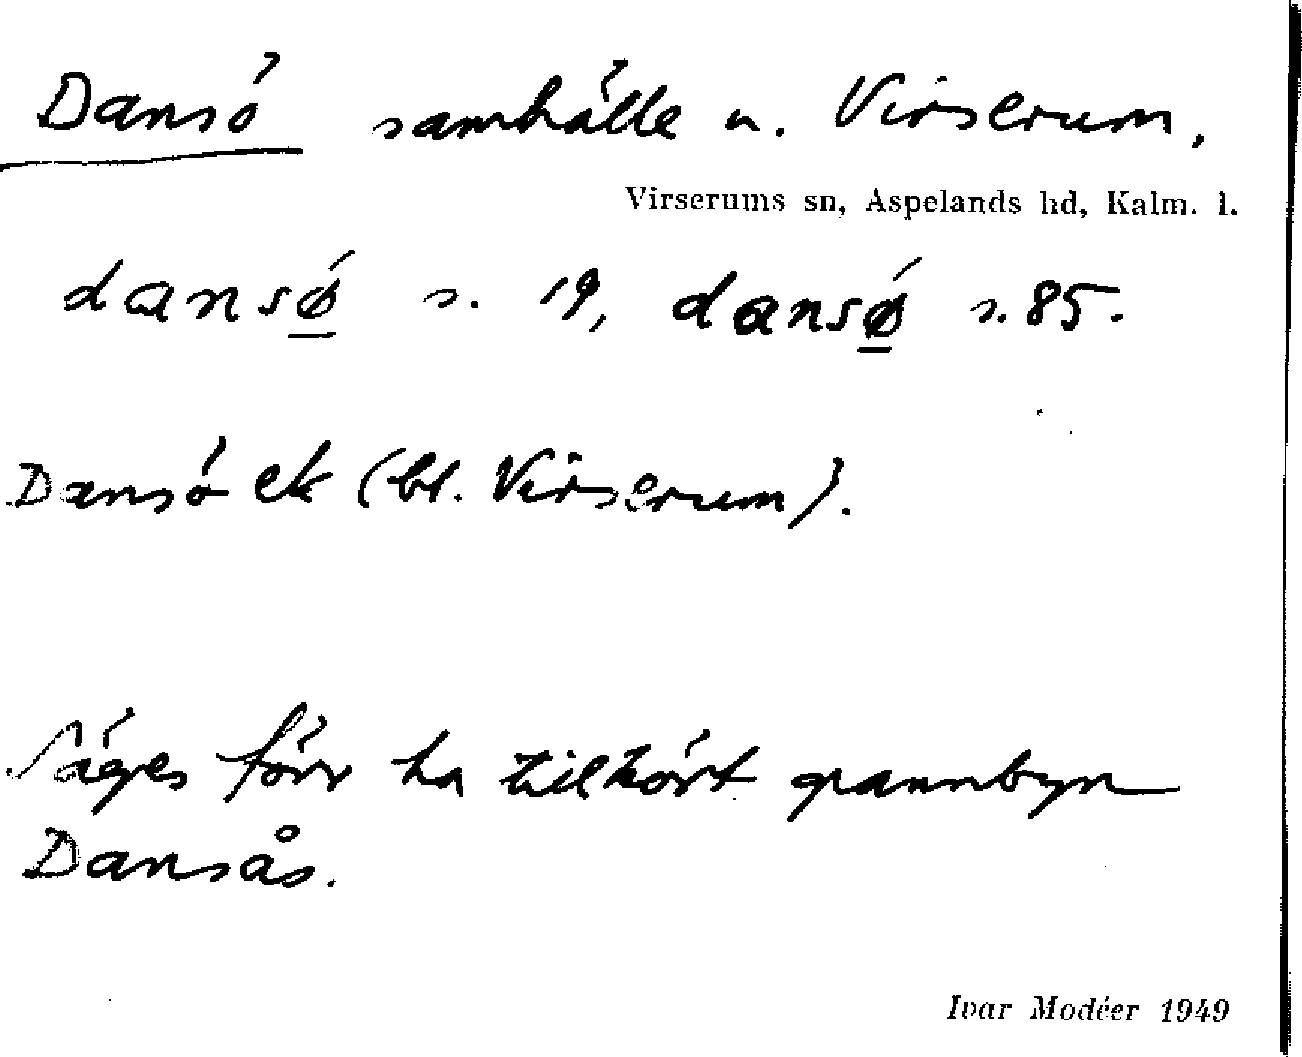 Dansö samhälle n. Virserum.
Virserums sn, Aspelands hd, Kalm. l.
dansø s. 19, dansø s. 85.
Dansö ek (bl. Virserum).
Säges förr ha tillhört grannbyn
Dansås.
Ivar Modéer 1949